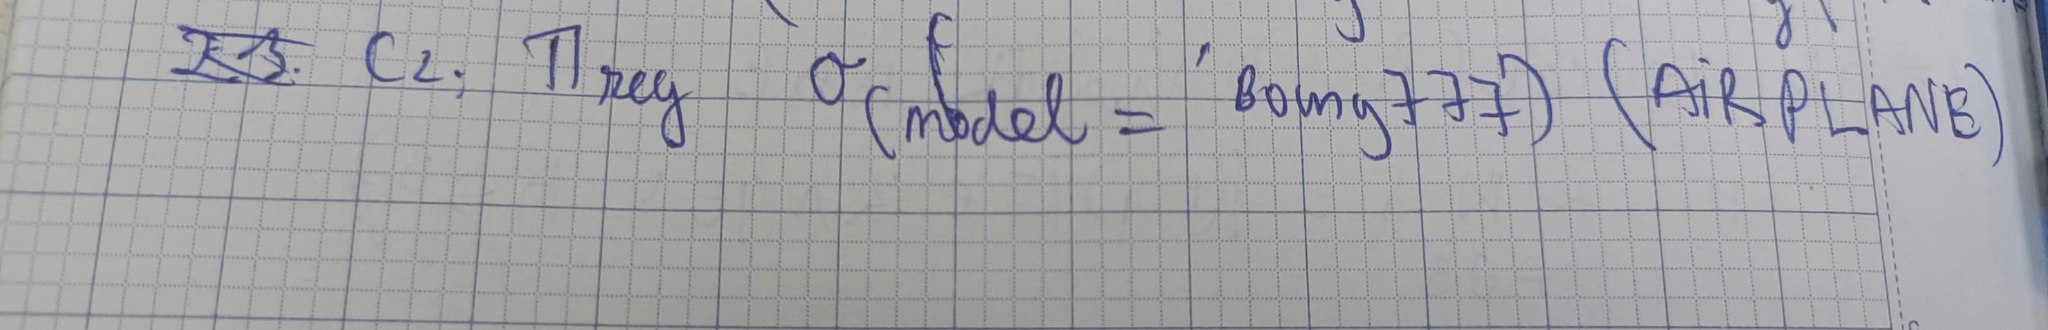 C2. π reg σ (model = 'Boing777) (AiRPLANE)